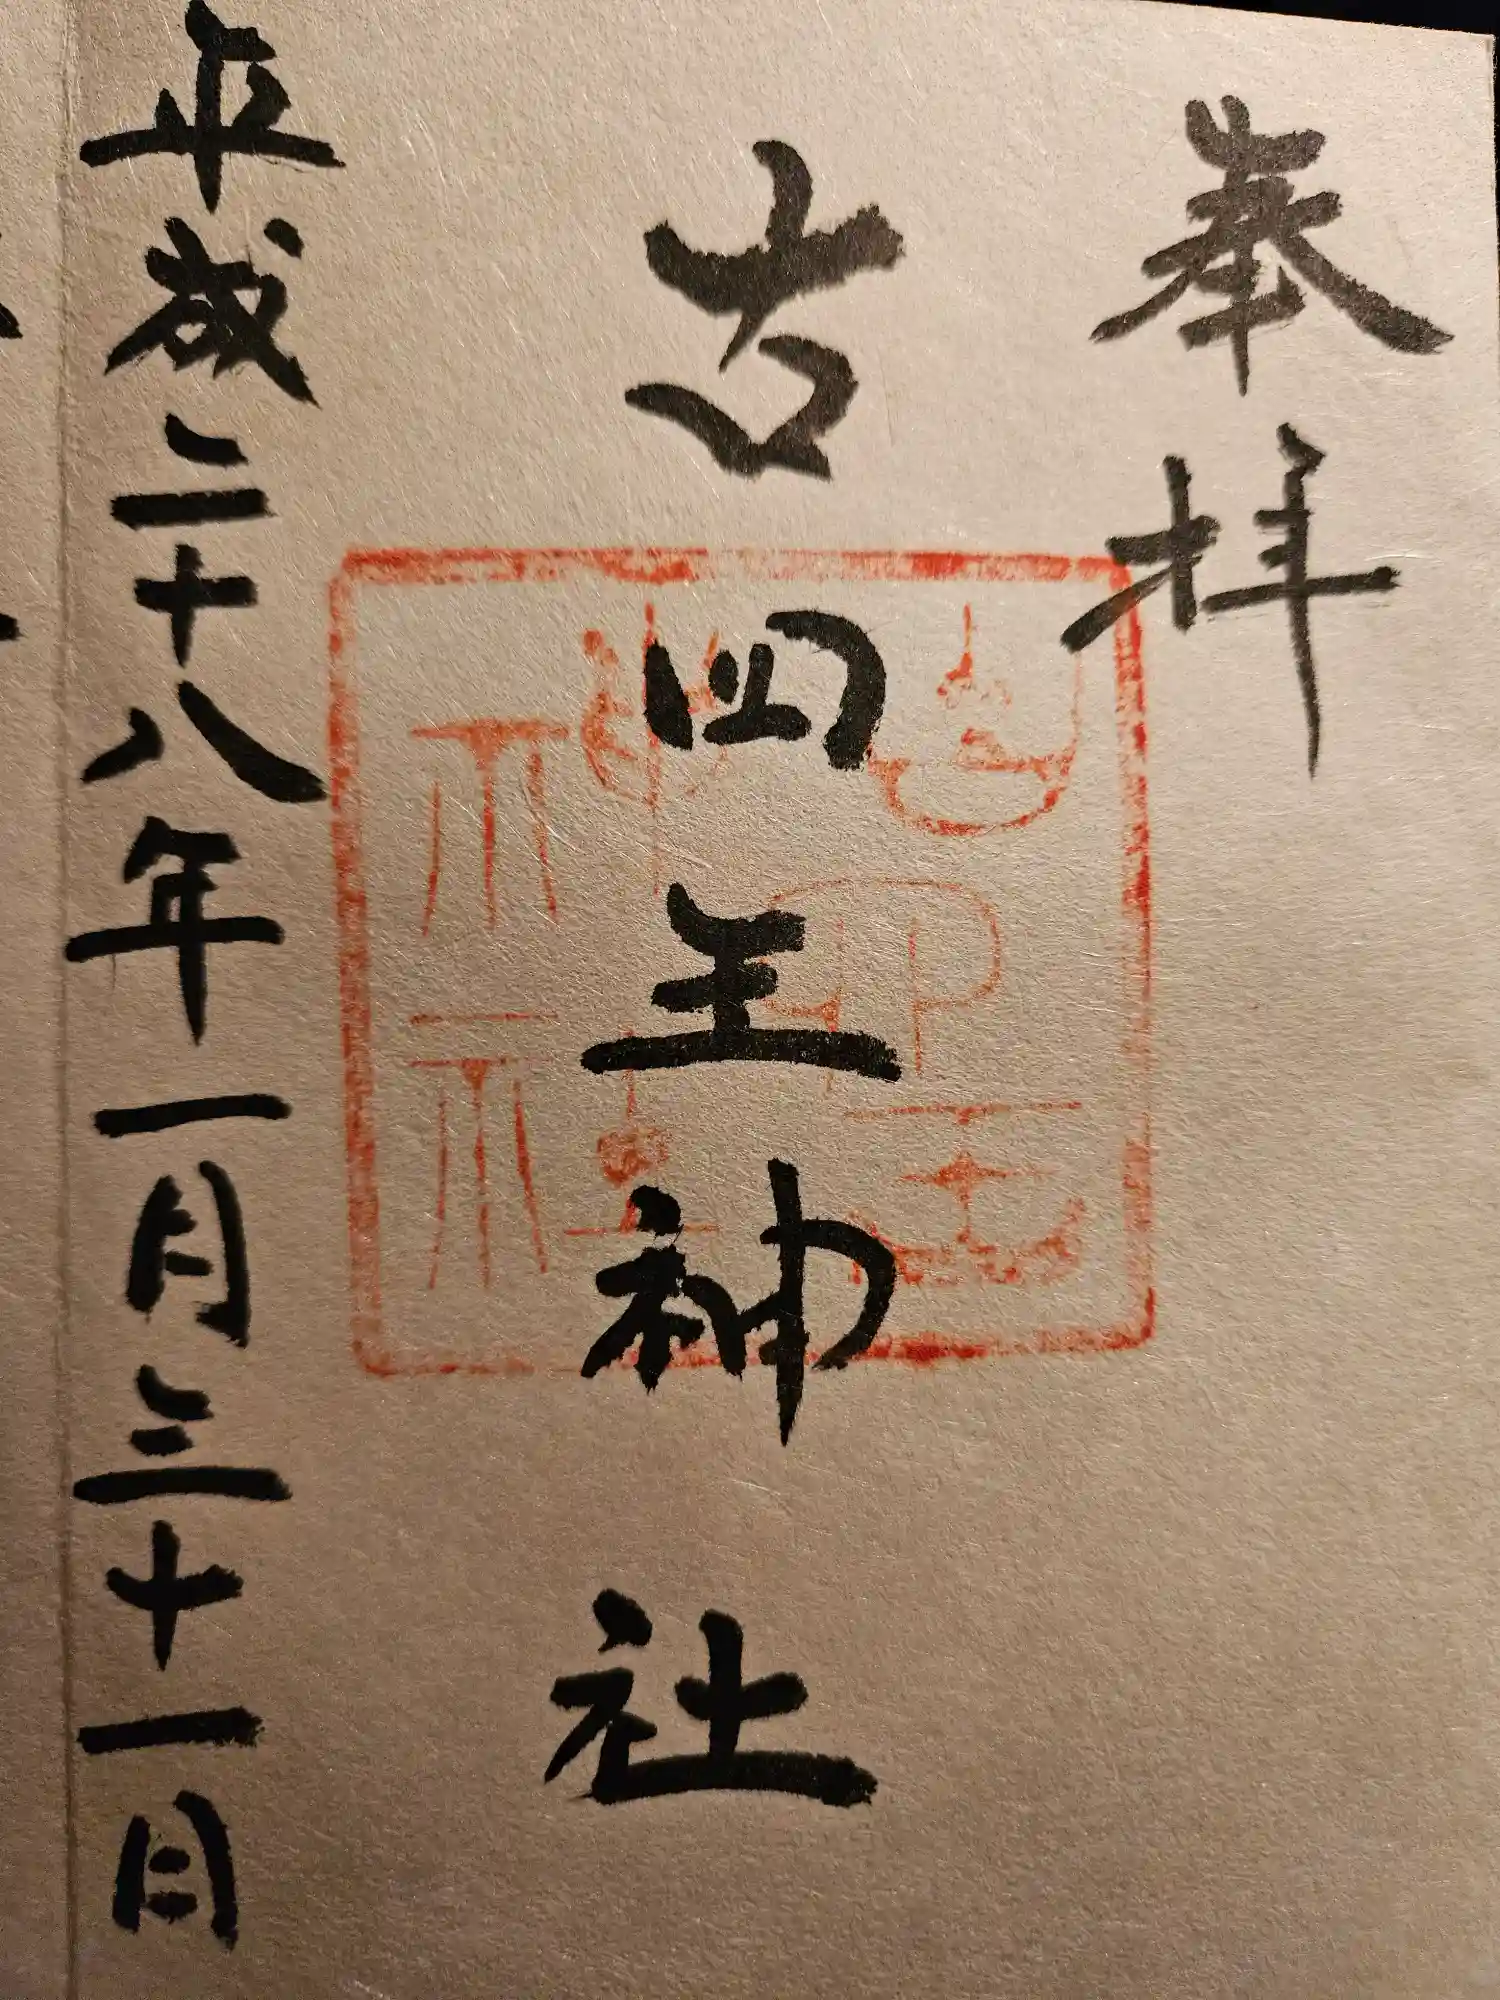 奉拝
古四王神社
平成二十八年一月三十一日